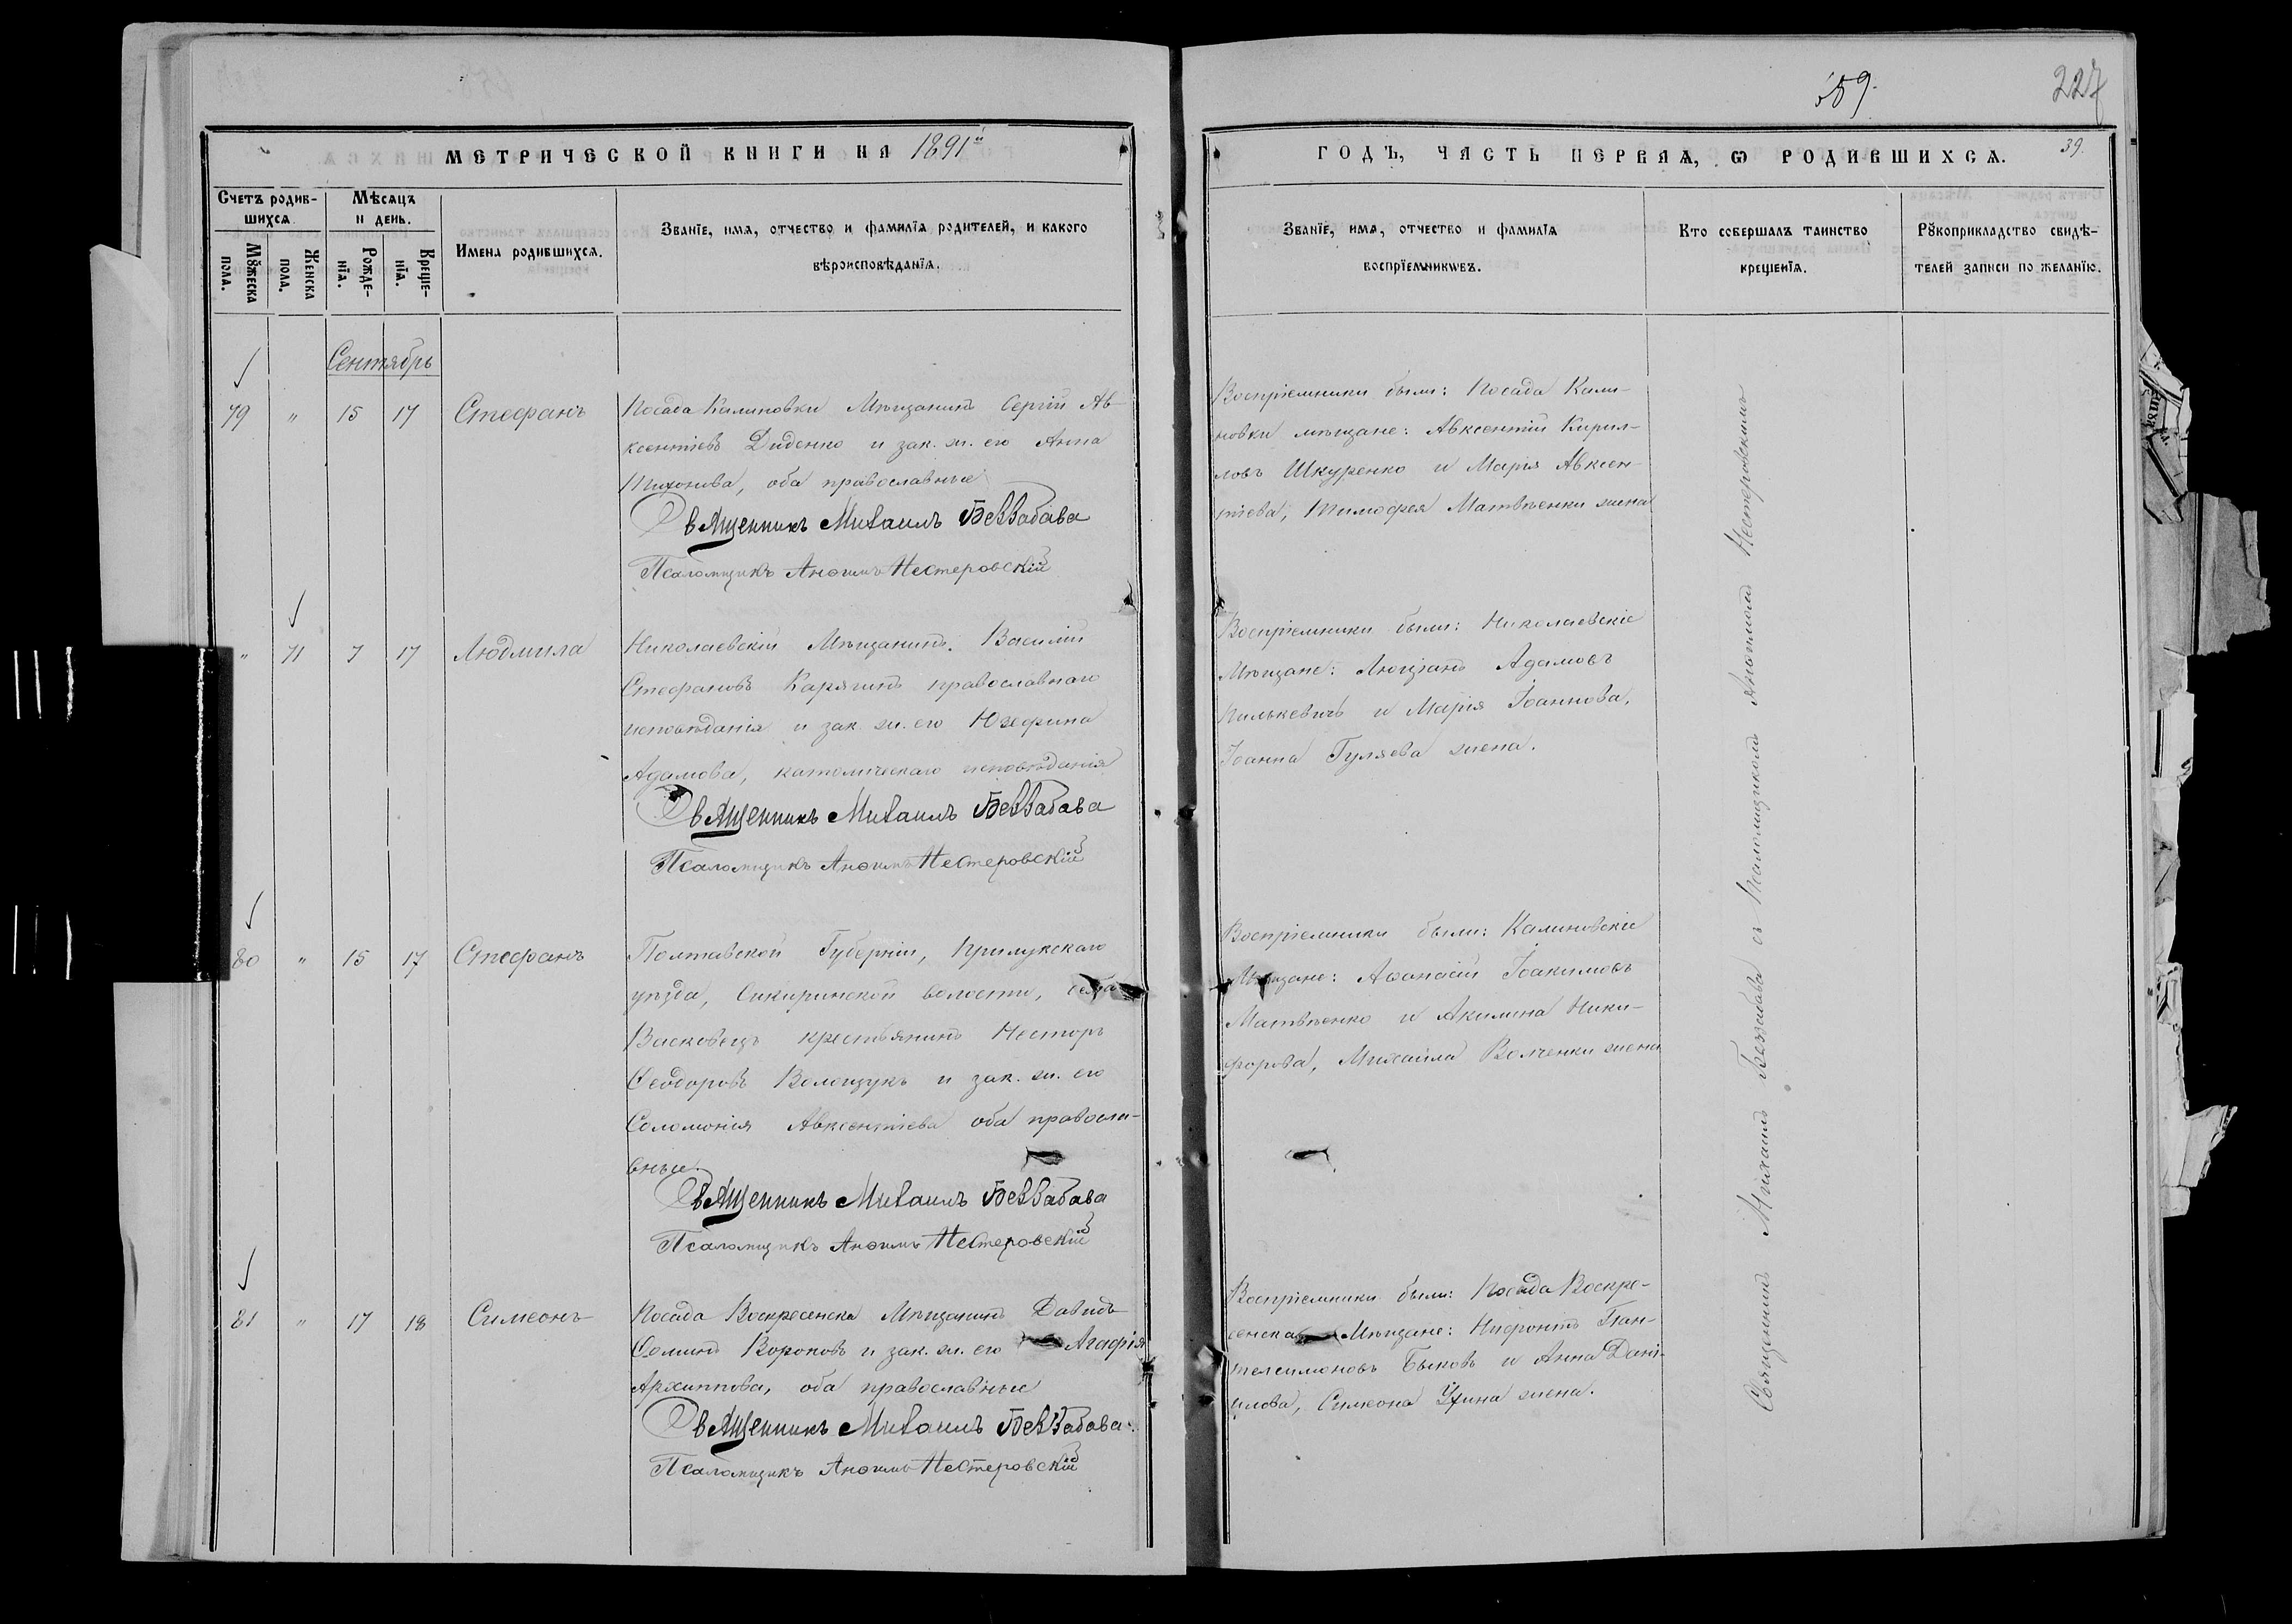 159.
227
39.
МЕТРИЧЕСКОЙ КНИГИ НА 1891й
ГОДЪ, ЧАСТЬ ПЕРВАЯ, Ѡ РОДИВШИХСЯ.
Счетъ родив-
шихся
Мꙋжеска
пола.
Женска
пола.
Мѣсяцъ
и день.
Рожде-
нїя.
Креще-
нїя.
Имена родившихся.
Званїе, имя, отчество и фамилїя родителей, и какого
вѣроисповѣданїя.
Званїе, имя, отчество и фамилїя
воспрїемникѡвъ.
Кто совершалъ таинство
крещенїя.
Рꙋкоприкладство свидѣ-
телей записи по желанїю.
Сентябрь
79 " 15 17 Стефанъ
Посада Калиновки Мѣщанинъ Сергій Ав-
ксентіевъ Диденко и зак. ж. его Анна
Тихонова, оба православные
Священникъ Михаилъ Беззабава
Псаломщикъ Анѳимъ Нестеровскій
Воспріемники были: Посада Кали-
новки мѣщане: Авксентій Кирил-
ловъ Шкуренко и Марія Авксен-
тіева, Тимофея Матвѣенки жена
" 71 7 17 Людмила
Николаевскій Мѣщанинъ Василій
Стефановъ Карягинъ православнаго
исповѣданія и зак. ж. его Юзефина
Адамова, католическаго исповѣданія
Священникъ Михаилъ Беззабава
Псаломщикъ Анѳимъ Нестеровскій
Воспріемники были: Николаевскіе
Мѣщане: Люціанъ Адамовъ
Пилькевичъ и Марія Іоаннова,
Іоанна Гуляева жена.
80 " 15 17 Стефанъ
Полтавской Губерніи, Прилукскаго
уѣзда, Сикиринской волости, села
Васковецъ крестьянинъ Несторъ
Ѳеодоровъ Волощукъ и зак. ж. его
Соломонія Авксентіева оба правосла-
вные.
Священникъ Михаилъ Беззабава
Псаломщикъ Анѳимъ Нестеровскій
Воспріемники были: Калиновскіе
Мѣщане: Аѳанасій Іоакимовъ
Матвѣенко и Акилина Ники-
форова, Михаила Волченки жена
81 " 17 18 Симеонъ
Посада Воскресенска Мѣщанинъ Давидъ
Ѳоминъ Вороновъ и зак. ж. его Агафія
Архиппова, оба православные
Священникъ Михаилъ Беззабава.
Псаломщикъ Анѳимъ Нестеровскій
Воспріемники были: Посада Воскре-
сенска Мѣщане: Нифонтъ Пан-
телеимоновъ Быковъ и Анна Дані-
илова, Симеона жена.
Священникъ Михаилъ Беззабава съ Псаломщикомъ Анѳимомъ Нестеровскимъ